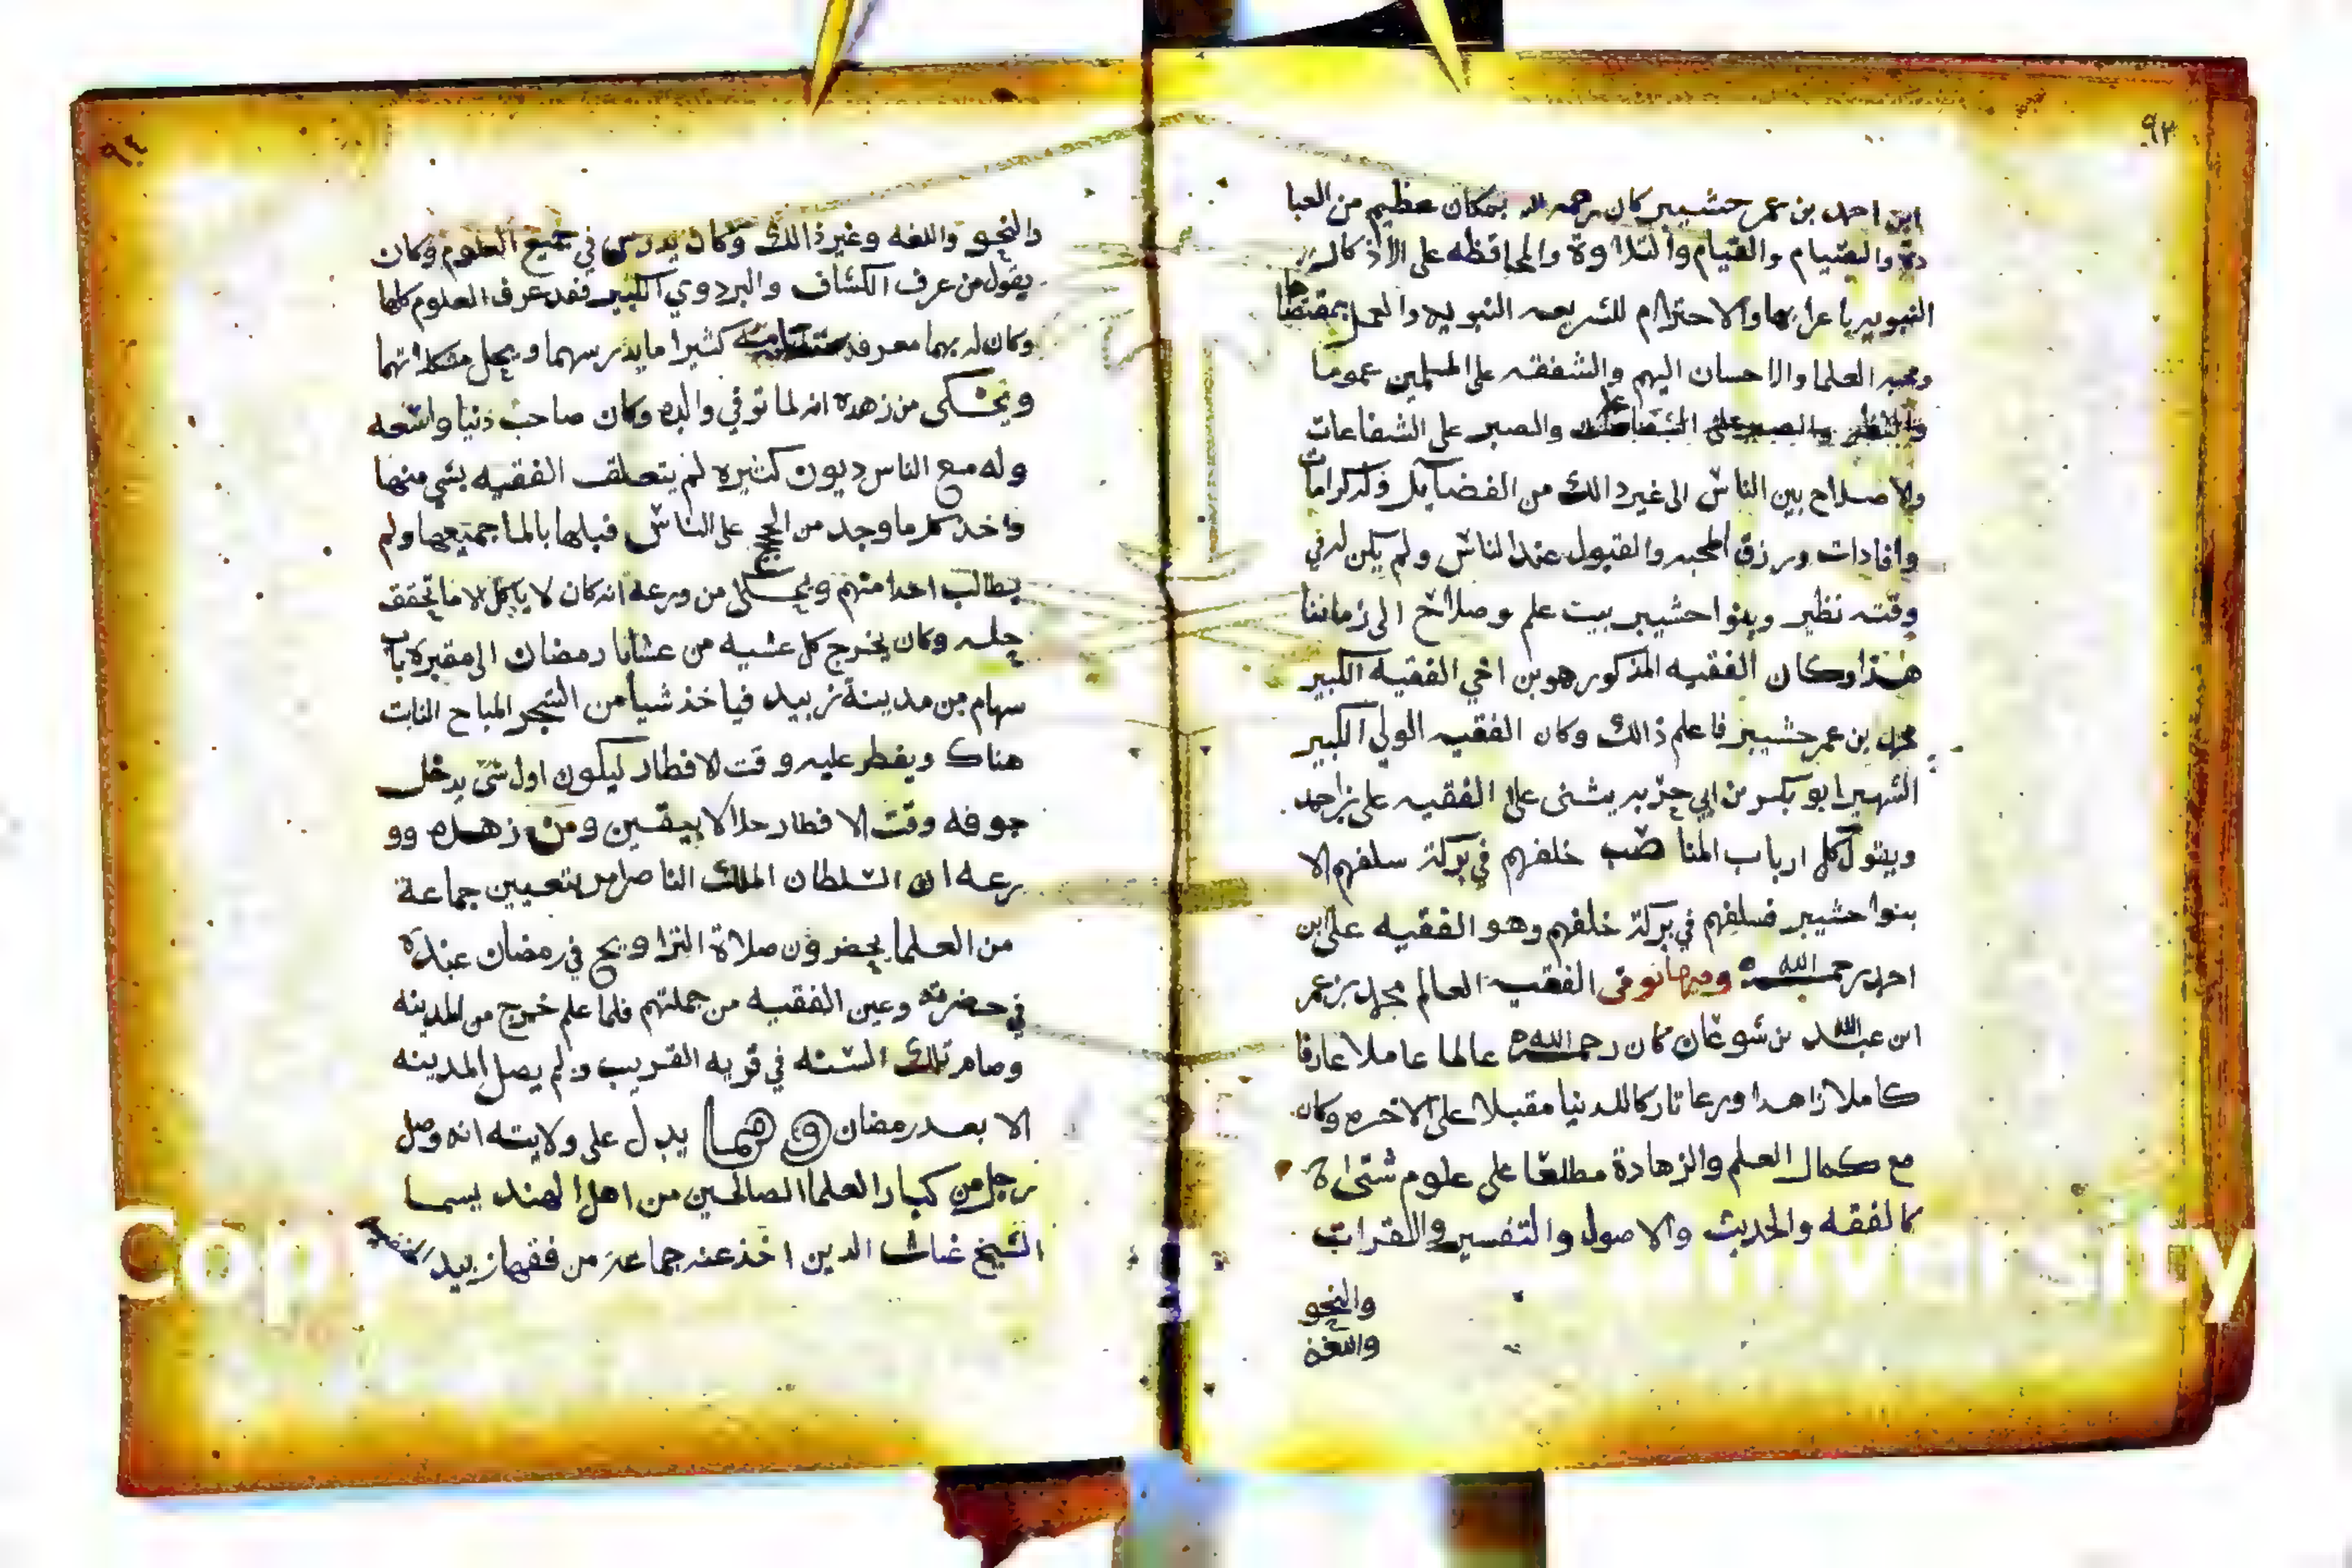 ٩٣
ابن احمد بن عمر حشيبر كان رحمه الله بمكان عظيم من العبا
دة والصيام والقيام والتلاوة والمحافظه على الأذكار
النبويه باعرابها والاحترام للشريعه النبويه والعمل بمقتضاها
ومحبه العلما والاحسان اليهم والشفقه على المسلمين عموما
والصبر على الشفاعات
والاصلاح بين الناس الى غير ذالك من الفضايل وله كرامات
وافادات ورزق المحبه والقبول عند الناس ولم يكن له في
وقته نظير وبنوا حشيبر بيت علم وصلاح الى زماننا
هذا وكان الفقيه المذكور هو بن اخي الفقيه الكبير
محمد بن عمر حشيبر فاعلم ذالك وكان الفقيه الولي الكبير
الشهير ابو بكر بن ابي حربه يثنى على الفقيه علي بن احمد
ويقول كل ارباب المناصب خلفهم في بركة سلفهم الا
بنوا حشيبر فسلفهم في بركة خلفهم وهو الفقيه علي بن
احمد رحمه الله وفيها توفى الفقيه العالم محمد بن عمر
ابن عبد الله بن شوعان كان رحمه الله عالما عاملا عارفا
كاملا زاهدا ورعا تاركا للدنيا مقبلا على الاخره وكان
مع كمال العلم والزهادة مطلعا على علوم شتى
كالفقه والحديث والاصول والتفسير والقرات
والنحو
واللغة
٩٤
والنحو واللغه وغير ذالك وكان يدرس في جميع العلوم وكان
يقول من عرف الكشاف والبردوي الكبير فقد عرف العلوم كلها
وكان له بهما معرفه كثيرا ما يدرسهما ويحل مشكلاتهما
ويحكى من زهده انه لما توفي والده وكان صاحب دنيا واسعه
وله مع الناس ديون كثيره لم يتعلق الفقيه بشي منها
واخذ كل ما وجد من الحجج على الناس فبلها بالما جميعها ولم
يطالب احدا منهم ويحكى من ورعه انه كان لا ياكل الا ما تحقق
حله وكان يخرج كل عشيه من عشايا رمضان الى مقبرة باب
سهام من مدينة زبيد فياخذ شيا من الشجر المباح النابت
هناك ويفطر عليه وقت الافطار ليكون اول شي يدخل
جوفه وقت الافطار حلالا بيقين ومن زهده وو
رعه ان السلطان الملك الناصر امر بتعيين جماعة
من العلما يحضرون صلاة التراويح في رمضان عنده
في حضرته وعين الفقيه من جملتهم فلما علم خرج من المدينه
وصام تلك السنه في قريه القريب ولم يصل المدينه
الا بعد رمضان ومما يدل على ولايته انه وصل
رجل من كبار العلما الصالحين من اهل الهند يسما
الشيخ غياث الدين اخذ عنه جماعة من فقها زبيد